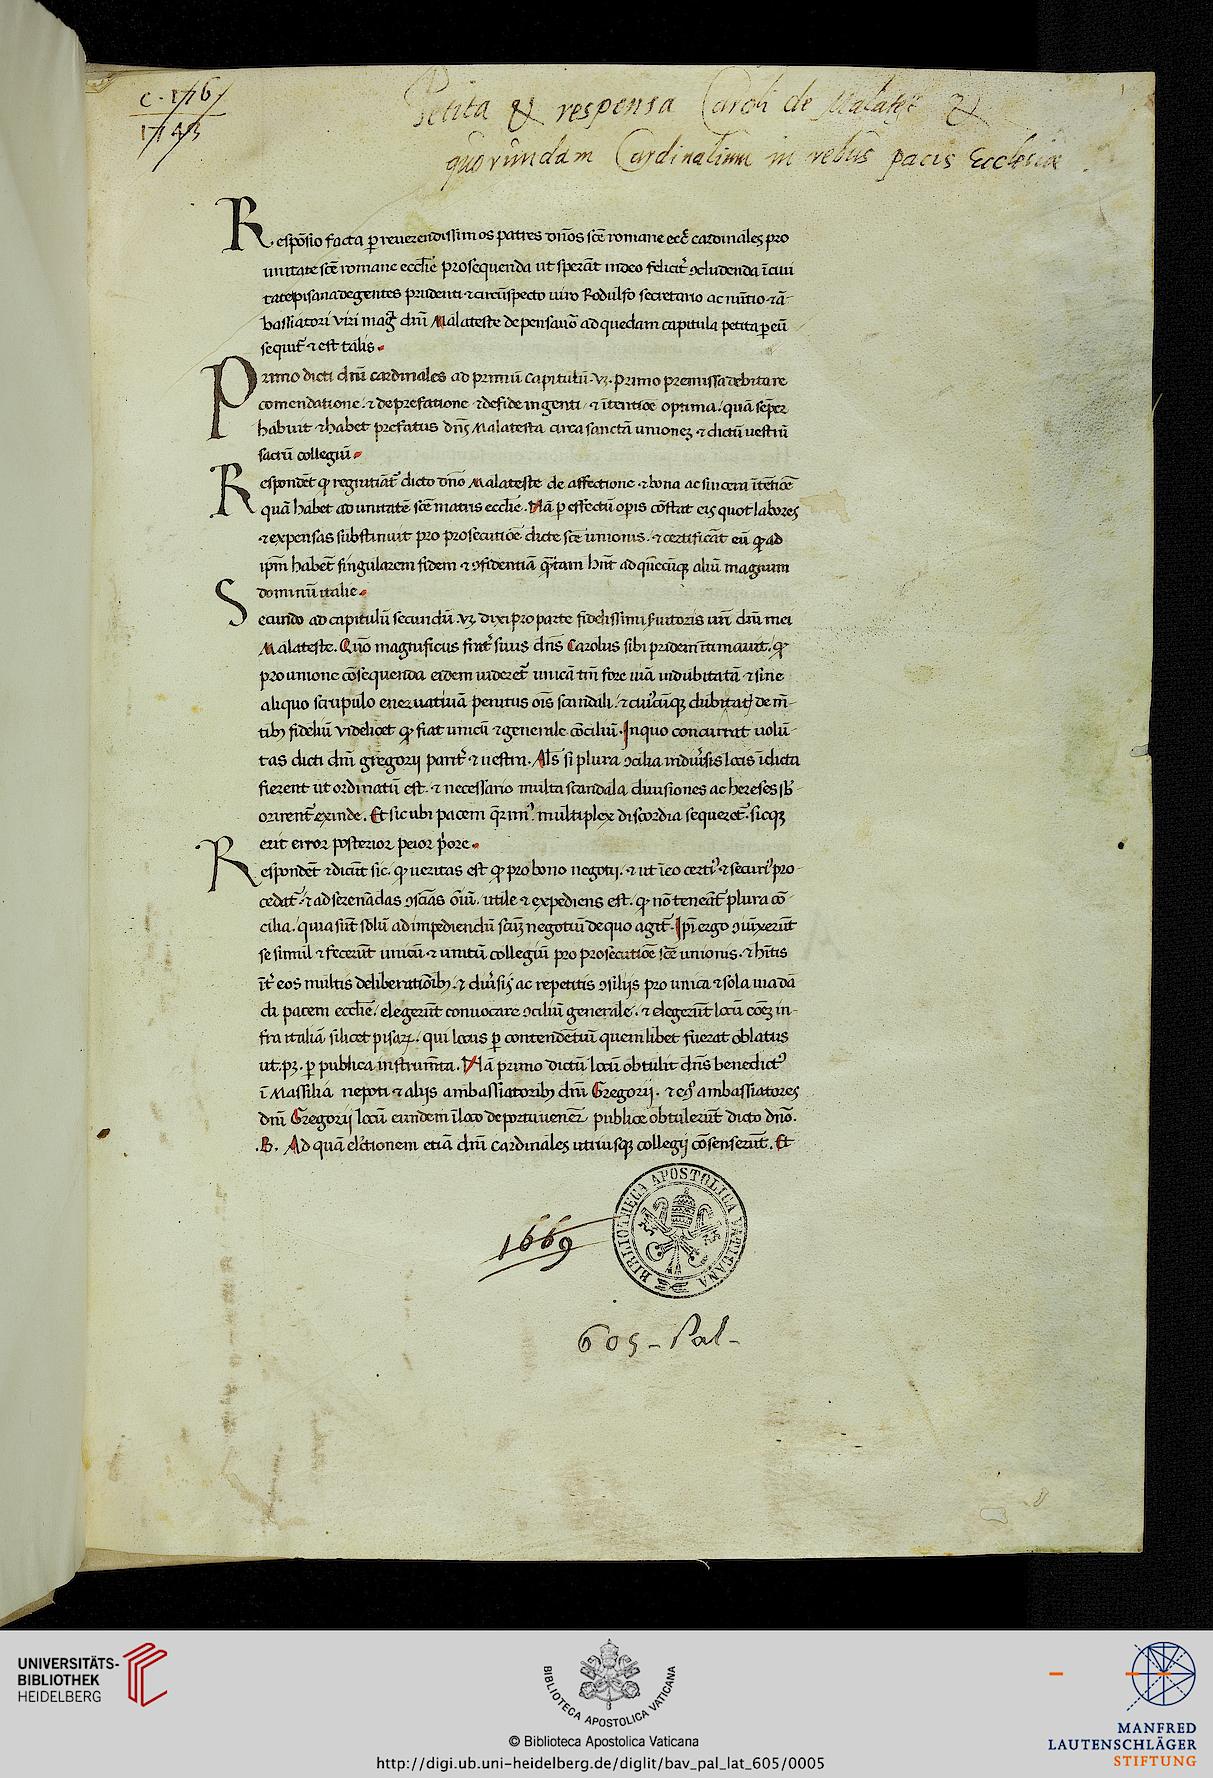 C. 116
1743
Petita & responsa Caroli de Malatest &
quorundam Cardinalium in rebus pacis Ecclesiæ
Respōsio facta ꝑ reuerendissimos patres dn̄os scē romane eccē cardinales pro
unitate scē romane eccl̄ie prosequenda ut sperāt in deo felicit̄ ꝯcludenda ī ciui
tate pisana degentes prudenti ⁊ circūspecto uiro Rodulfo secretario ac nūtio ⁊ ā-
bassiatori viri maḡ dn̄i Malateste de pensauro ad quedam capitula petita ꝑ eū
sequit̄ ⁊ est talis.
Primo dicti dn̄i cardinales ad primū capitulū .vꝫ. primo premissa debita re
comendatione. ⁊ de prefatione ⁊ de fide ingenti. ⁊ ītentiōe optima. quā sēper
habuit ⁊ habet prefatus dn̄s Malatesta circa sanctā unionez ⁊ dictū uestrū
sacrū collegiū.
Respondēt ꝙ regratiāt̄ dicto dn̄o Malateste de affectione ⁊ bona ac sincera ītētiōe
quā habet ad unitatē scē matris eccl̄ie. Nā ꝑ effectū opis cōstat eis quot labores
⁊ expensas substinuit pro prosecutiōe dicte scē unionis. ⁊ certificāt eū ꝙ ad
ip̄m habēt singularem fidem ⁊ ꝯfidentiā q̄tam hn̄t ad quēcūqꝫ aliū magnum
dominū italie.
Secundo ad capitulū secundū .vꝫ. dixi pro parte fidelissimi s̄uitoris urī dn̄i mei
Malateste. Quō magnificus frat̄ suus dn̄s Carolus sibi pridem ītimauit. ꝙ
pro unione cōsequenda eidem uideret̄ unicā tm̄ fore uiā indubitatā ⁊ sine
aliquo scrupulo eneruatiuā penitus oīs scandali. ⁊ cuiuscūqꝫ dubitat̄ de m̄-
tibꝫ fideliū videlicet ꝙ fiat unicū ⁊ generale cōciliū. In quo concurrat uolū-
tas dicti dn̄i gregorij parit̄ ⁊ uestra. Al̄s si plura ꝯcilia in diūsis locis īdicta
fierent ut ordinatū est. ⁊ necessario multa scandala diuisiones ac hereses sb̄-
orirent̄ exinde. Et sic ubi pacem q̄rim᷒ multiplex discordia sequeret̄. sicqꝫ
erit error posterior peior p̄ore.
Respondēt ⁊ dicūt sic. ꝙ ueritas est ꝙ pro bono negotij. ⁊ ut ī eo certi᷒ ⁊ securi᷒ pro-
cedat̄. ⁊ ad serenādas ꝯsciās ōiū. utile ⁊ expediens est. ꝙ nō teneāt̄ plura cō-
cilia. quia sūt solū ad impediendū scūz negotiū de quo agit̄. Ip̄i ergo ꝯiūxerūt
se simul ⁊ fecerūt unicū ⁊ unitū collegiū pro prosecutiōe scē unionis. ⁊ hītis
īt̄ eos multis deliberatiōibꝫ. ⁊ diūsis ac repetitis ꝯsilijs pro unica ⁊ sola uia dā
di pacem eccl̄ie. elegerūt conuocare ꝯciliū generale. ⁊ elegerūt locū cōez in-
fra italiā silicet pisaꝝ. qui locus ꝑ contendētiū quemlibet fuerat oblatus
ut .pꝫ. ꝑ publica instrumēta. Nā primo dictū locū obtulit dn̄s benedict᷒
ī Massilia nepoti ⁊ alijs ambassiatoribꝫ dn̄i Gregorij. ⁊ e᷒ ambassiatores
dn̄i Gregorij locū eundem ī loco de portuuenēr publice obtulerūt dicto dn̄o.
.B. Ad quā elc̄tionem etiā dn̄i cardinales utriusqꝫ collegij cōsenserūt. Et
BIBLIOTHECA APOSTOLICA VATICANA
1669
605 - Pal -
UNIVERSITÄTS-
BIBLIOTHEK
HEIDELBERG
BIBLIOTECA APOSTOLICA VATICANA
© Biblioteca Apostolica Vaticana
http://digi.ub.uni-heidelberg.de/diglit/bav_pal_lat_605/0005
MANFRED
LAUTENSCHLÄGER
STIFTUNG